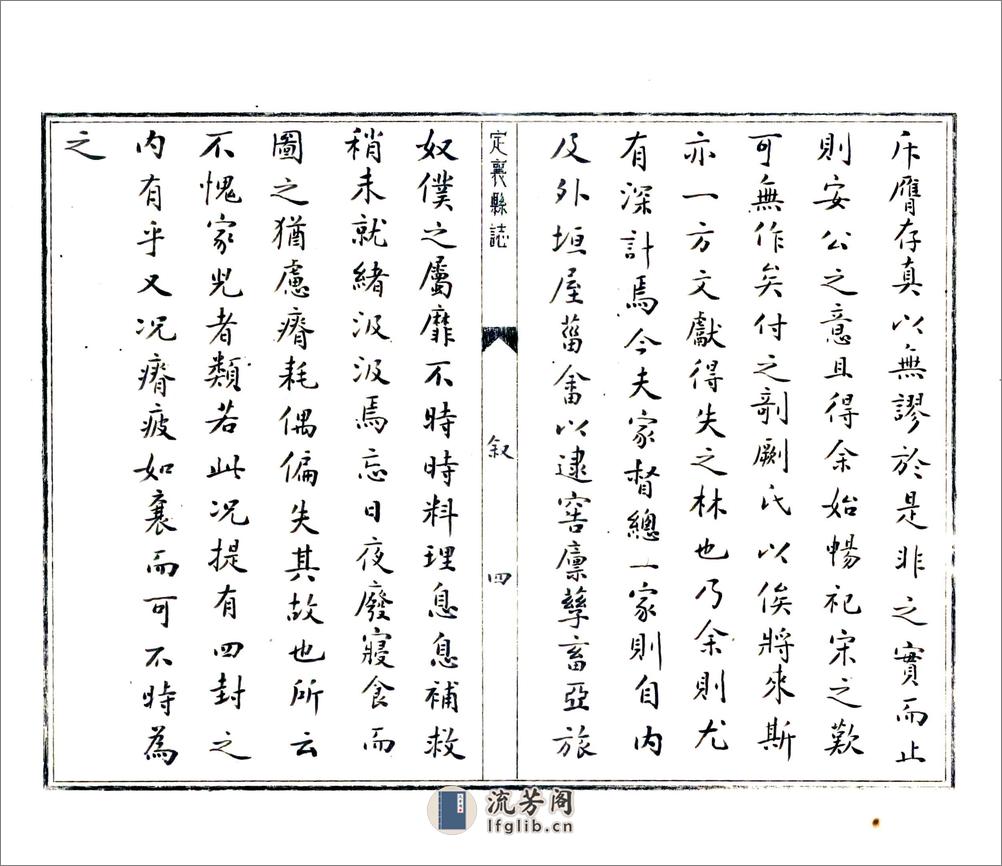 斥贗存真以無謬於是非之實而止
則安公之意且得余始暢祀宋之歎
可無作矣付之剞劂氏以俟將來斯
亦一方文獻得失之林也乃余則尤
有深計焉今夫家督總一家則自内
及外垣屋菑畬以逮窖廪孳畜亞旅
定襄縣誌
叙
四
奴僕之屬靡不時時料理息息補救
稍未就緒汲汲焉忘日夜廢寢食而
圖之猶慮瘠耗偶偏失其故也所云
不愧家兒者類若此况提有四封之
内有乎又况瘠疲如襄而可不時為
之
流芳阁
lfglib.cn